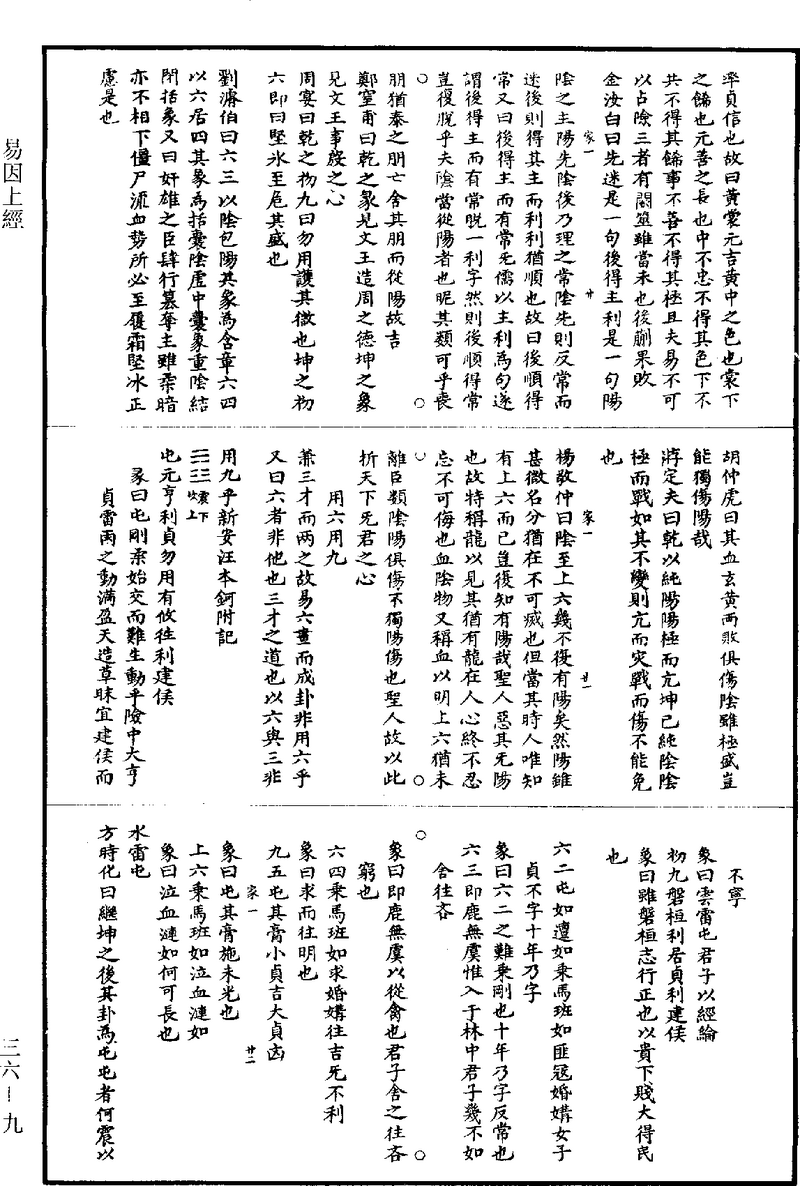 易因上經
率貞信也故曰黃裳元吉黃中之色也裳下
之餙也元善之長也中不忠不得其色下不
共不得其餙事不善不得其極且夫易不可
以占險三者有闕筮雖當未也後蒯果敗
金汝白曰先迷是一句後得主利是一句陽
家一 廿
陰之主陽先陰後乃理之常陰先則反常而
迷後則得其主而利利猶順也故曰後順得
常又曰後得主而有常先儒以主利為句遂
謂後得主而有常脫一利字然則後順得常
豈復脫乎夫陰當從陽者也昵其類可乎喪
朋猶泰之朋亡舍其朋而從陽故吉
鄭窒甫曰乾之彖見文王造周之德坤之彖
見文王事殷之心
周宴曰乾之初九曰勿用護其微也坤之初
六即曰堅氷至危其盛也
劉濬伯曰六三以陰包陽其象為含章六四
以六居四其象為括囊陰虛中囊象重陰結
閉括象又曰奸雄之臣肆行篡奪主雖柔暗
亦不相下僵尸流血勢所必至履霜堅冰正
慮是也
胡仲虎曰其血玄黃兩敗俱傷陰雖極盛豈
能獨傷陽哉
蔣定夫曰乾以純陽陽極而亢坤已純陰陰
極而戰如其不變則亢而灾戰而傷不能免
也
家一 廿一
楊敬仲曰陰至上六幾不復有陽矣然陽雖
甚微名分猶在不可滅也但當其時人唯知
有上六而已豈復知有陽哉聖人惡其无陽
也故特稱龍以見其猶有龍在人心終不忍
忘不可侮也血陰物又稱血以明上六猶未
離臣類陰陽俱傷不獨陽傷也聖人故以此
折天下无君之心
用六用九
兼三才而兩之故易六畫而成卦非用六乎
又曰六者非他也三才之道也以六與三非
用九乎新安汪本鈳附記
震下坎上
屯元亨利貞勿用有攸往利建侯
彖曰屯剛柔始交而難生動乎險中大亨
貞雷雨之動滿盈天造草昧宜建侯而
不寧
象曰雲雷屯君子以經論
初九磐桓利居貞利建侯
象曰雖磐桓志行正也以貴下賤大得民
也
六二屯如邅如乘馬班如匪寇婚媾女子
貞不字十年乃字
象曰六二之難乘剛也十年乃字反常也
六三即鹿無虞惟入于林中君子幾不如
舍往吝
象曰即鹿無虞以從禽也君子舍之往吝
窮也
六四乘馬班如求婚媾往吉无不利
象曰求而往明也
九五屯其膏小貞吉大貞凶
家一 廿二
象曰屯其膏施未光也
上六乘馬班如泣血漣如
象曰泣血漣如何可長也
水雷屯
方時化曰繼坤之後其卦為屯屯者何震以
三六－九